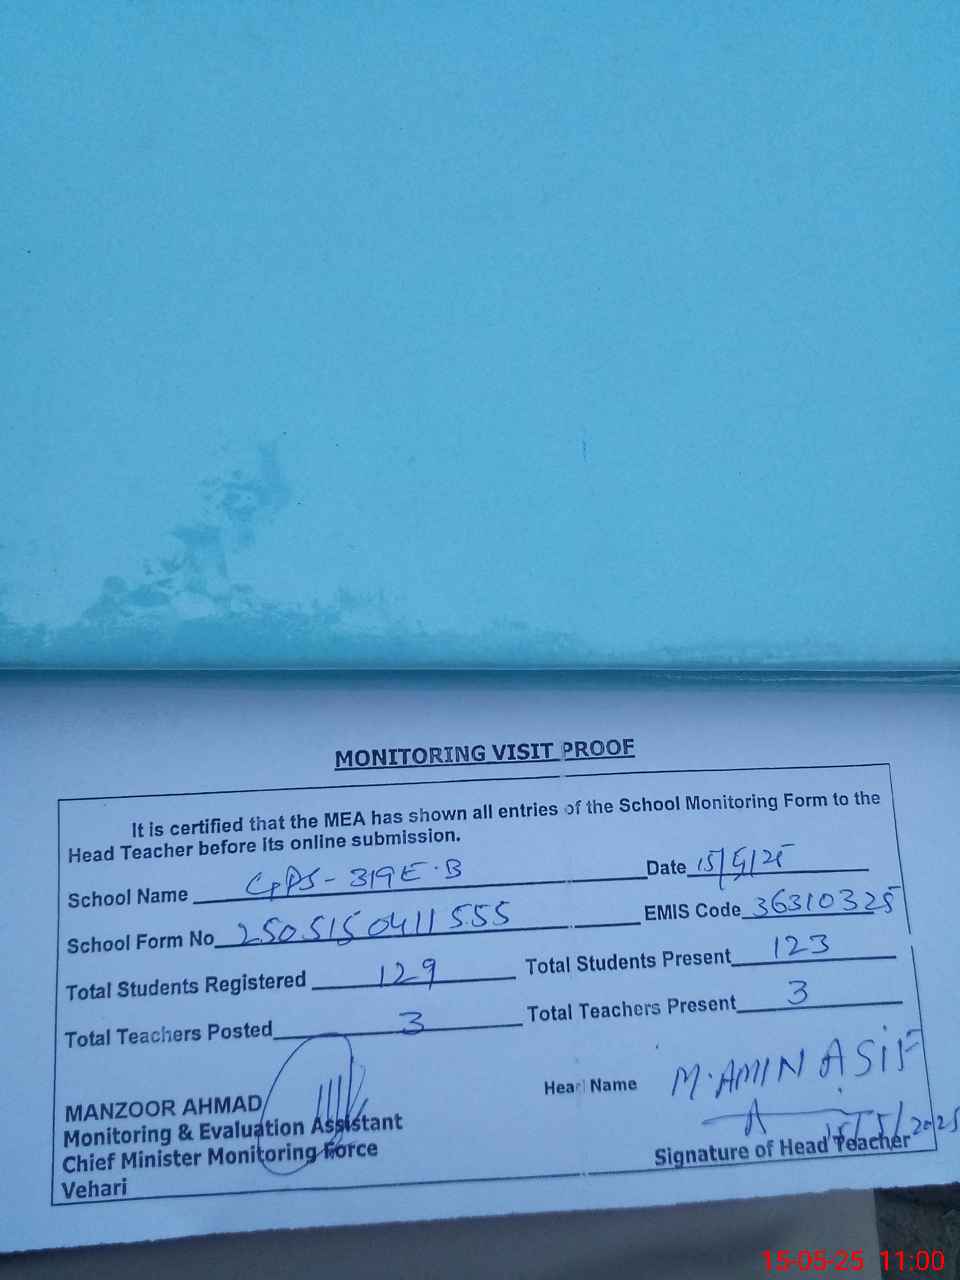 MONITORING VISIT PROOF
It is certified that the MEA has shown all entries of the School Monitoring Form to the
Head Teacher before its online submission.
School Name GPS-319E.B Date 15/5/25
School Form No 2505150411555 EMIS Code 36310325
Total Students Registered 129 Total Students Present 123
Total Teachers Posted 3 Total Teachers Present 3
MANZOOR AHMAD Head Name M.AMIN ASIF
Monitoring & Evaluation Assistant 15/5/2025
Chief Minister Monitoring Force Signature of Head Teacher
Vehari
15-05-25 11:00